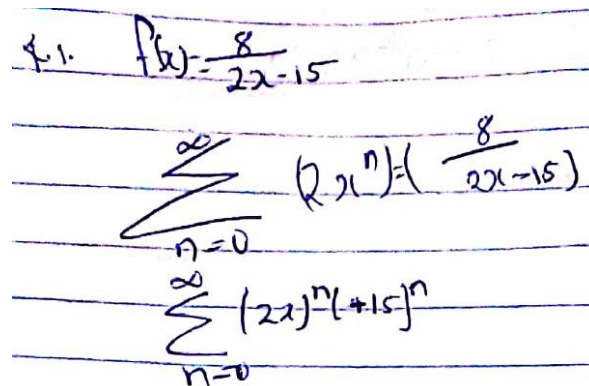 4.1. f(x)=8/(2x-15)
∞
∑ (2x^n)=(8/(2x-15))
n=0
∞
∑ (2x)^n(+15)^n
n=0